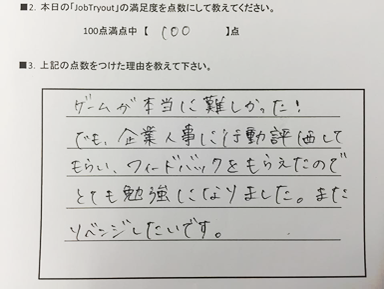 ■2. 本日の「JobTryout」の満足度を点数にして教えてください。
100点満点中【 100 】点
■3. 上記の点数をつけた理由を教えて下さい。
ゲームが本当に難しかった!
でも、企業人事に行動評価して
もらい、フィードバックをもらえたので
とても勉強になりました。また
リベンジしたいです。